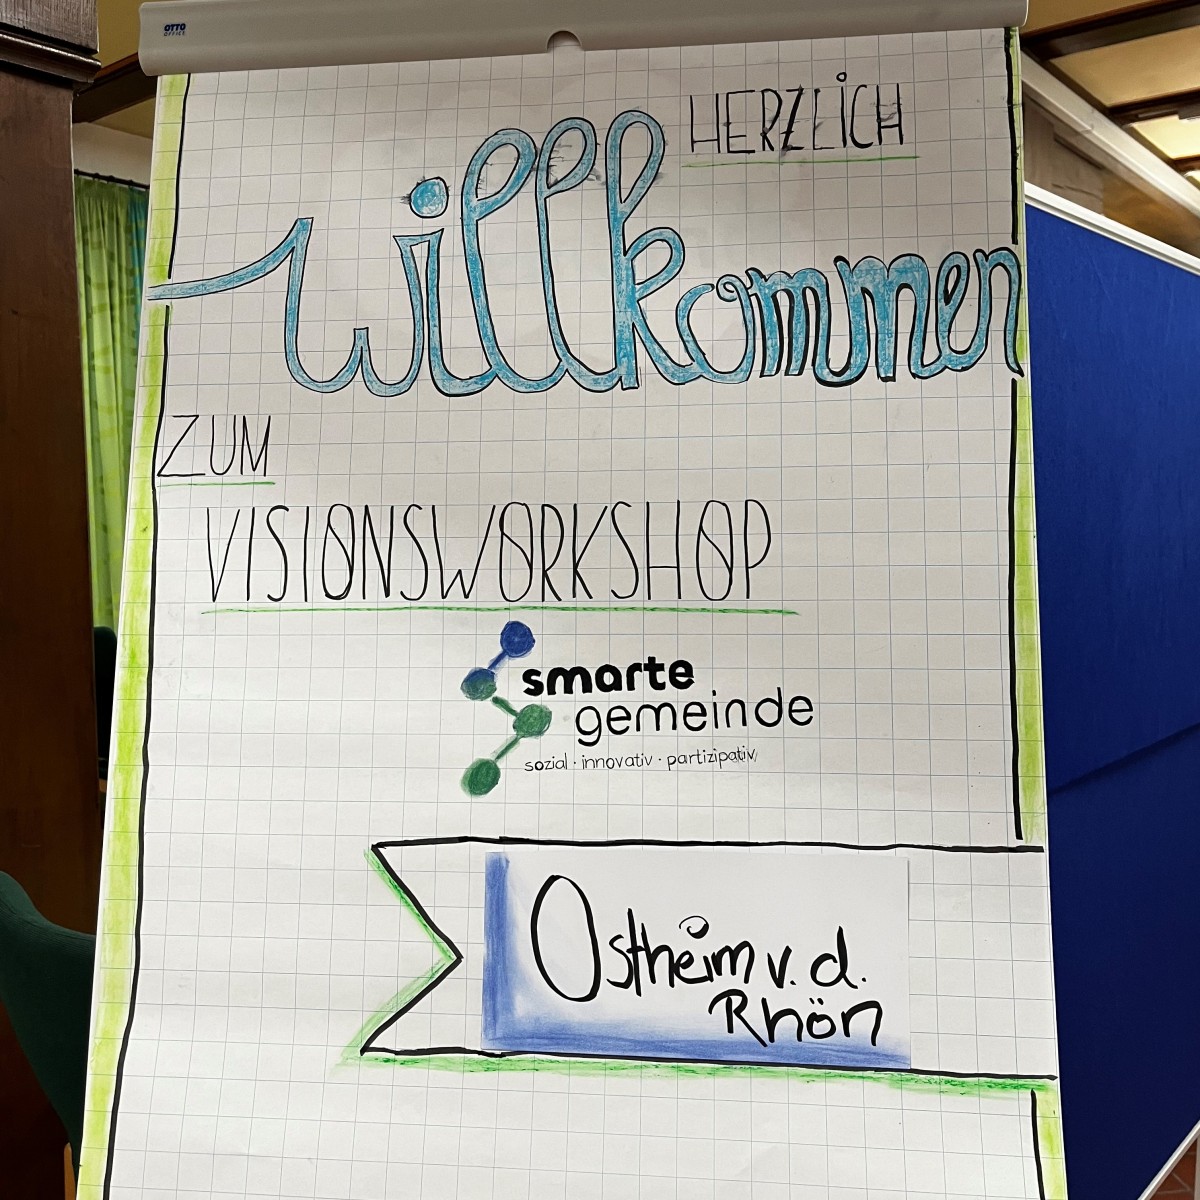 OTTO
OFFICE
HERZLICH
willkommen
ZUM
VISIONSWORKSHOP
smarte
gemeinde
sozial · innovativ · partizipativ
Ostheim v. d.
Rhön